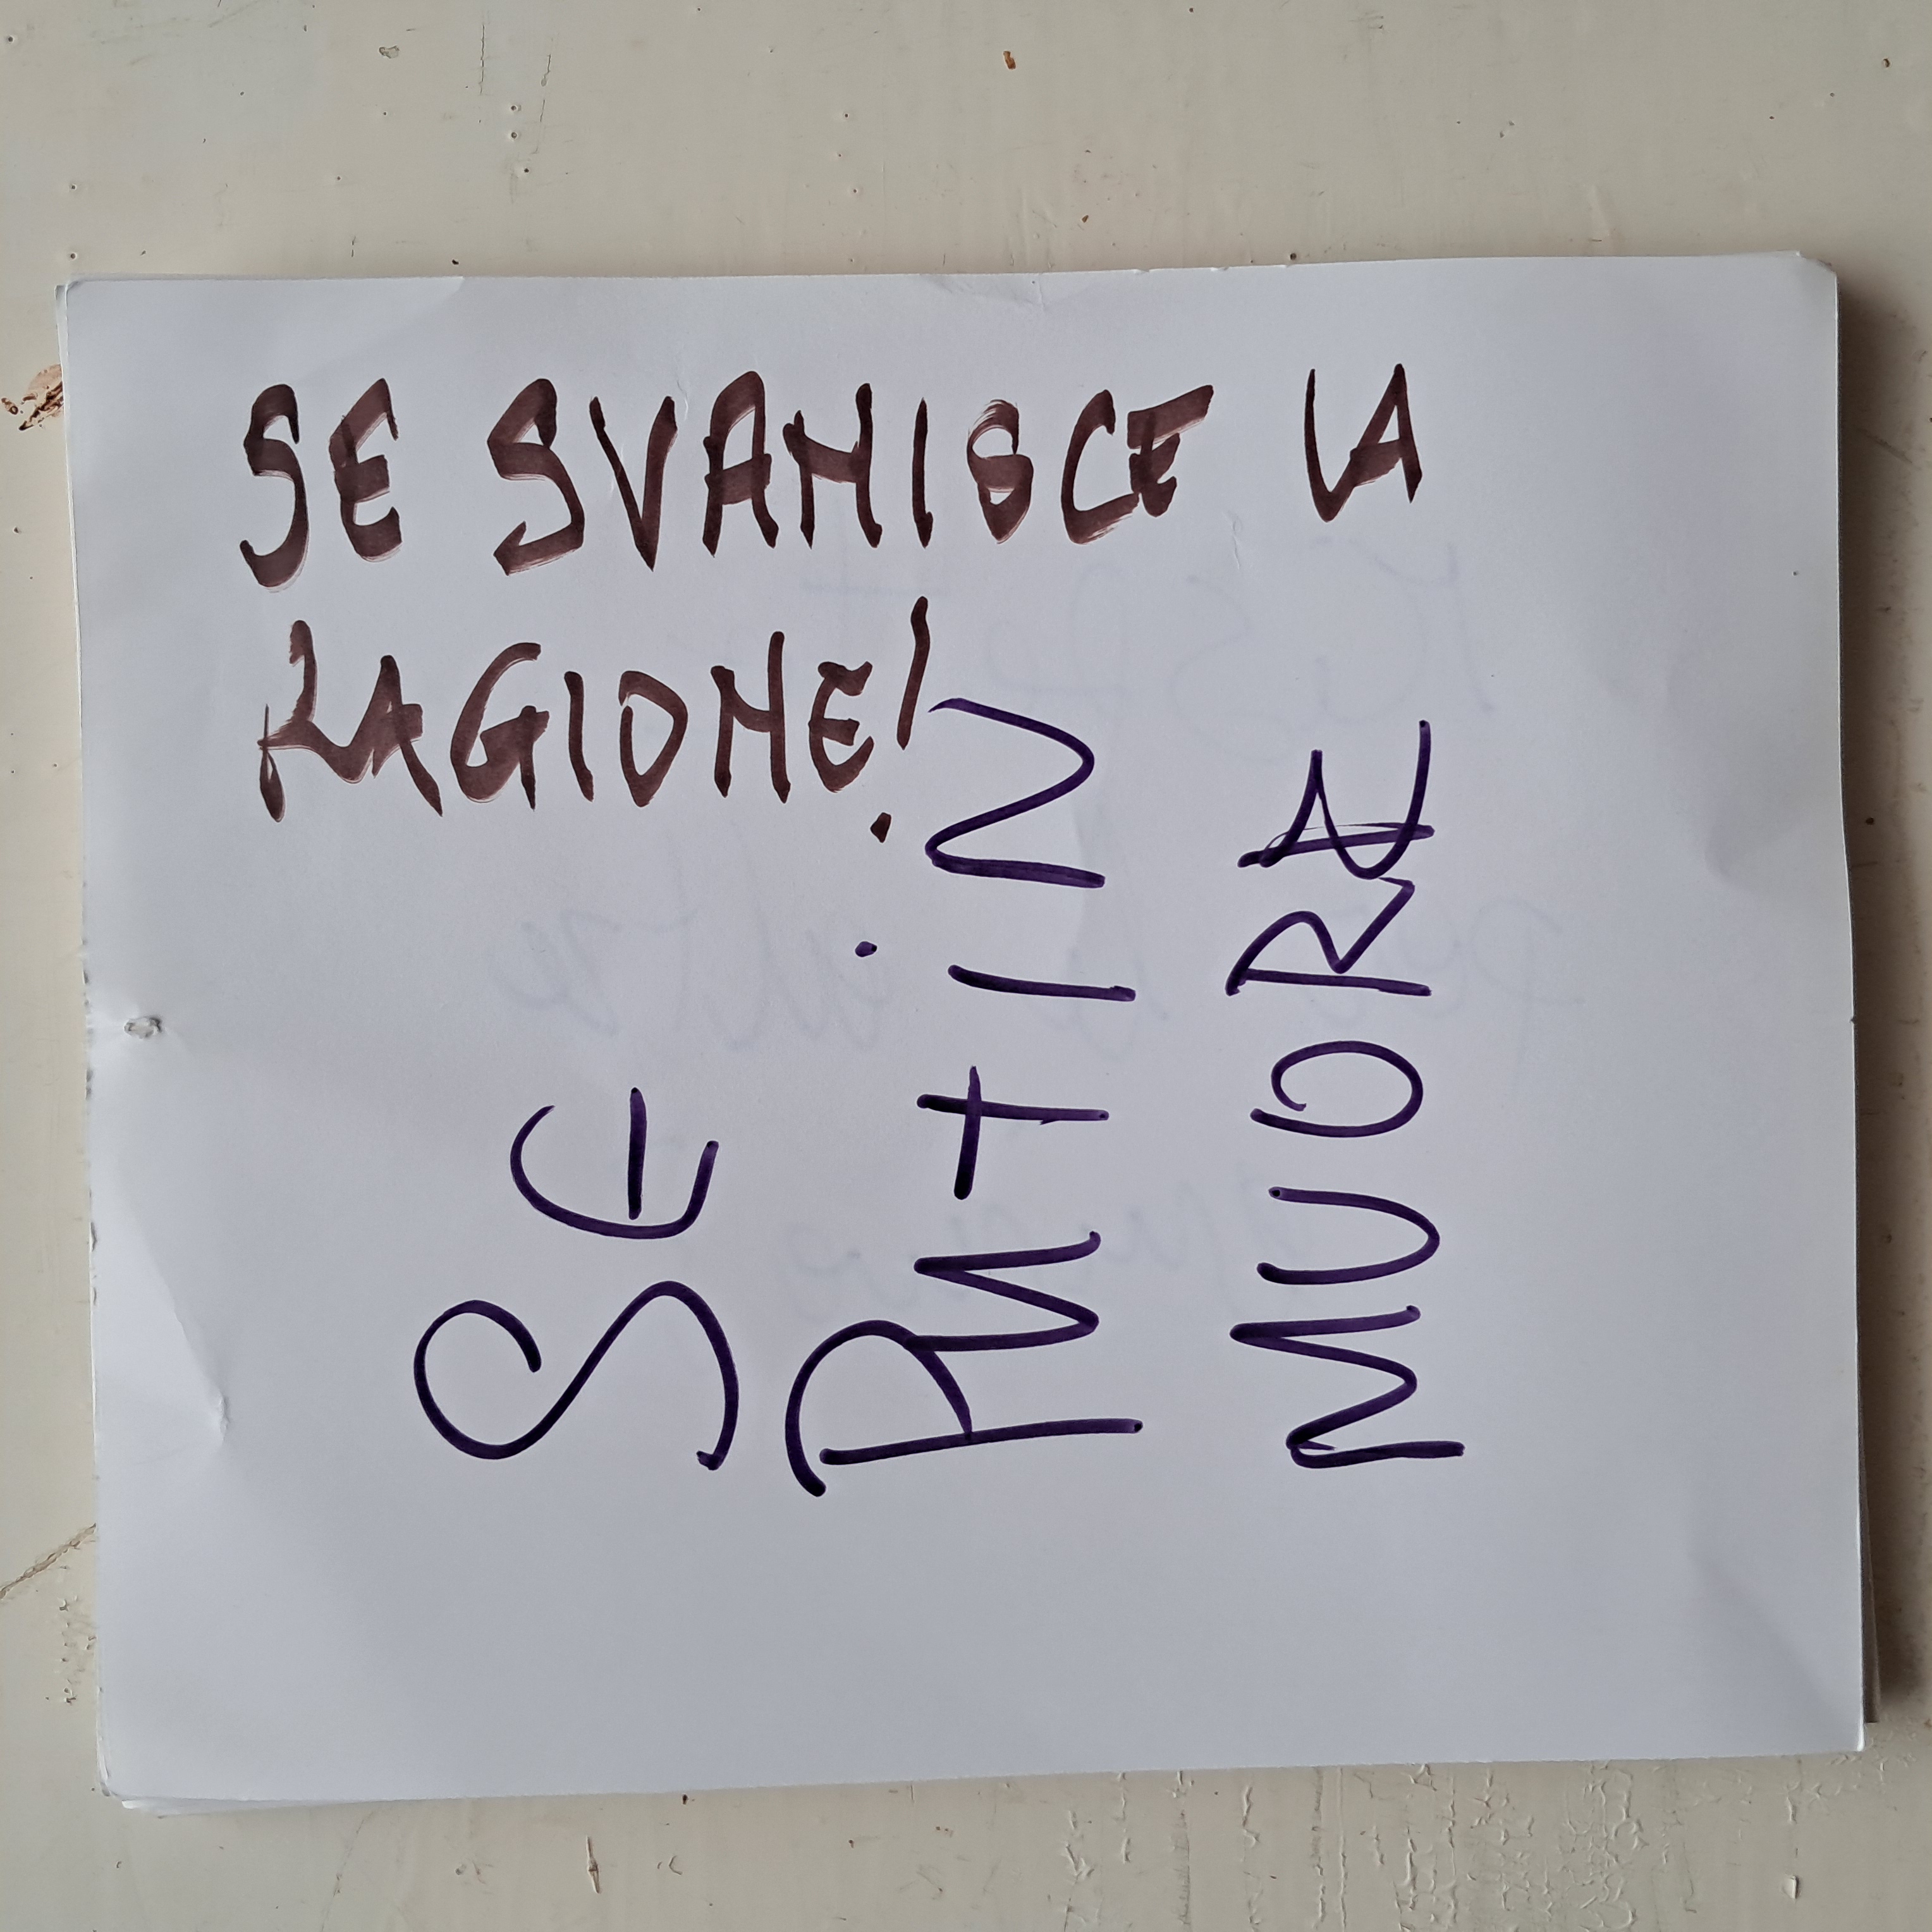 SE SVANISCE LA
RAGIONE!
Se
PUtiN
MUORE